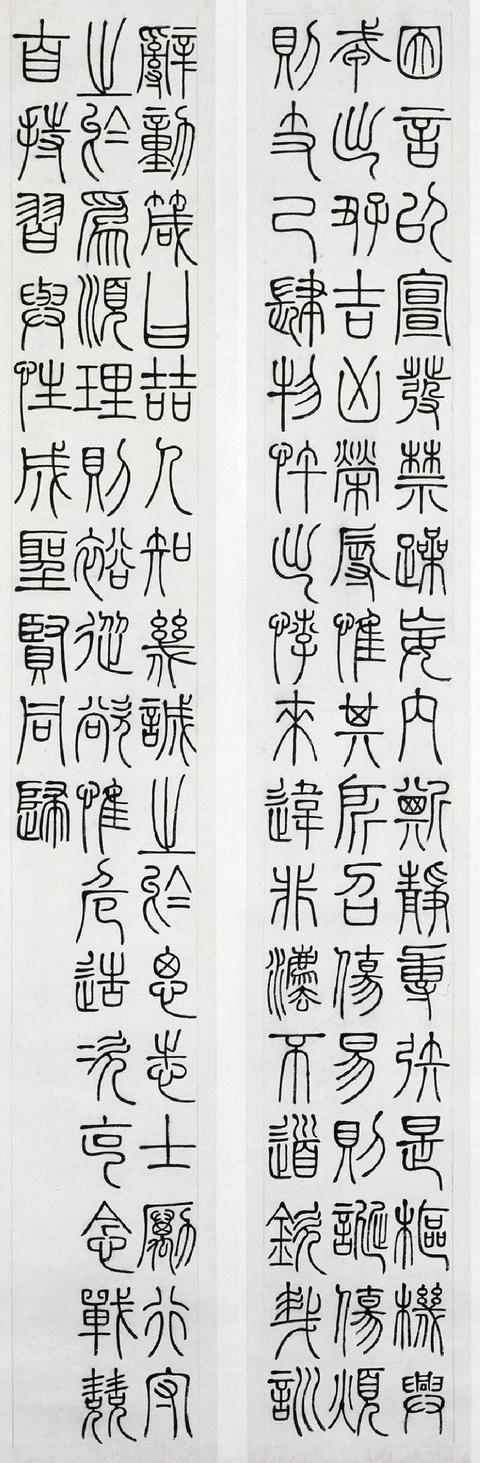 因言以宣發禁躁妄內斯靜專矧是樞機興
戎出好吉凶榮辱惟其所召傷易則誕傷煩
則支己肆物忤出悖來違非灋不道欽哉訓
辭動箴曰喆人知幾誠之於思志士勵行守
之於爲順理則裕從欲惟危造次克念戰兢
自持習與性成聖賢同歸